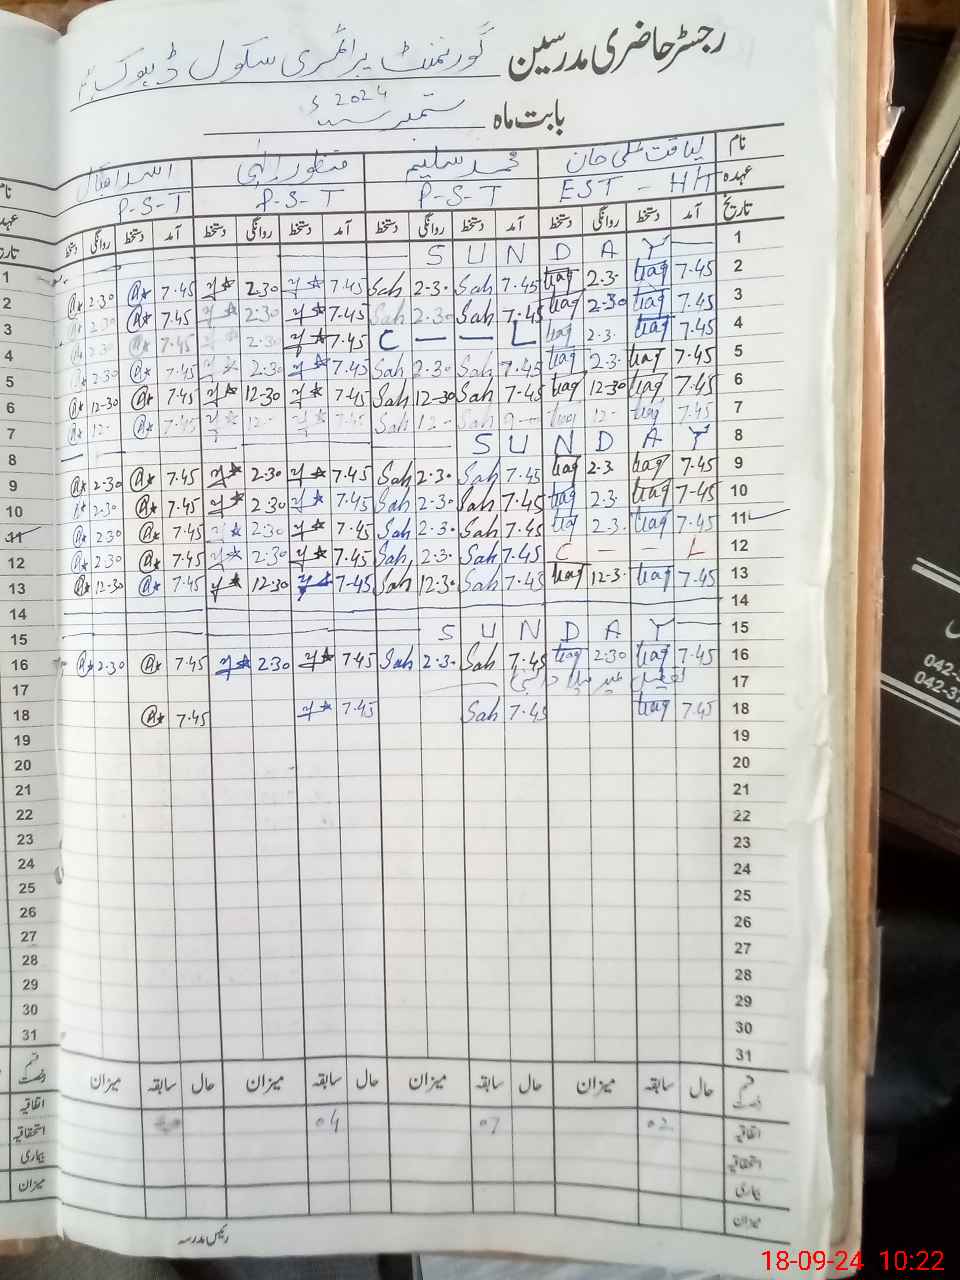 رجسٹر حاضری مدرسین گورنمنٹ پرائمری سکول ڈہوک
بابت ماہ ستمبر سنہ 2024ء
نام لیاقت علی خان محمد سلیم منظور الہٰی اسد اقبال
عہدہ EST - HT P-S-T P-S-T P-S-T
تاریخ آمد دستخط روانگی دستخط آمد دستخط روانگی دستخط آمد دستخط روانگی دستخط آمد دستخط روانگی دستخط
1 S U N D A Y
2 7.45 liaq 2.3. liaq 7.45 Sah 2.3. Sah 7.45 2.30 7.45 2.30
3 7.45 liaq 2.30 liaq 7.45 Sah 2.30 Sah 7.45 2.30 7.45 2.30
4 7.45 liaq 2.3. liaq C — — L 7.45 2.30 7.45 2.30
5 7.45 liaq 2.3. liaq 7.45 Sah 2.30 Sah 7.45 2.30 7.45 2.30
6 7.45 liaq 12-30 liaq 7.45 Sah 12-30 Sah 7.45 12.30 7.45 12-30
7 7.45 liaq 12- liaq Sah 12- Sah 7.45 12- 7.45 12-
8 S U N D A Y
9 7.45 liaq 2.3. liaq 7.45 Sah 2.3. Sah 7.45 2.30 7.45 2.30
10 7.45 liaq 2.3. liaq 7.45 Sah 2.3. Sah 7.45 2.30 7.45 2.30
11 7.45 liaq 2.3. liaq 7.45 Sah 2.3. Sah 7.45 2.30 7.45 2.30
12 C - - L 7.45 Sah 2.3. Sah 7.45 2.30 7.45 2.30
13 7.45 liaq 12-3. liaq 7.45 Sah 12.3. Sah 7.45 12.30 7.45 12-30
14
15 S U N D A Y
16 7.45 liaq 2.30 liaq 7.45 Sah 2.3. Sah 7.45 2.30 7.45 2.30
17 تعطیل عید میلاد النبی
18 7.45 liaq 7.45 Sah 7.45 7.45
19
20
21
22
23
24
25
26
27
28
29
30
31
قسم رخصت حال سابقہ میزان حال سابقہ میزان حال سابقہ میزان حال سابقہ میزان
اتفاقیہ 02 07 04
استحقاقیہ
بیماری
میزان
رئیس مدرسہ
نام
عہدہ
تاریخ
1
2
3
4
5
6
7
8
9
10
11
12
13
14
15
16
17
18
19
20
21
22
23
24
25
26
27
28
29
30
31
قسم رخصت
اتفاقیہ
استحقاقیہ
بیماری
میزان
042-3
042-37
18-09-24 10:22